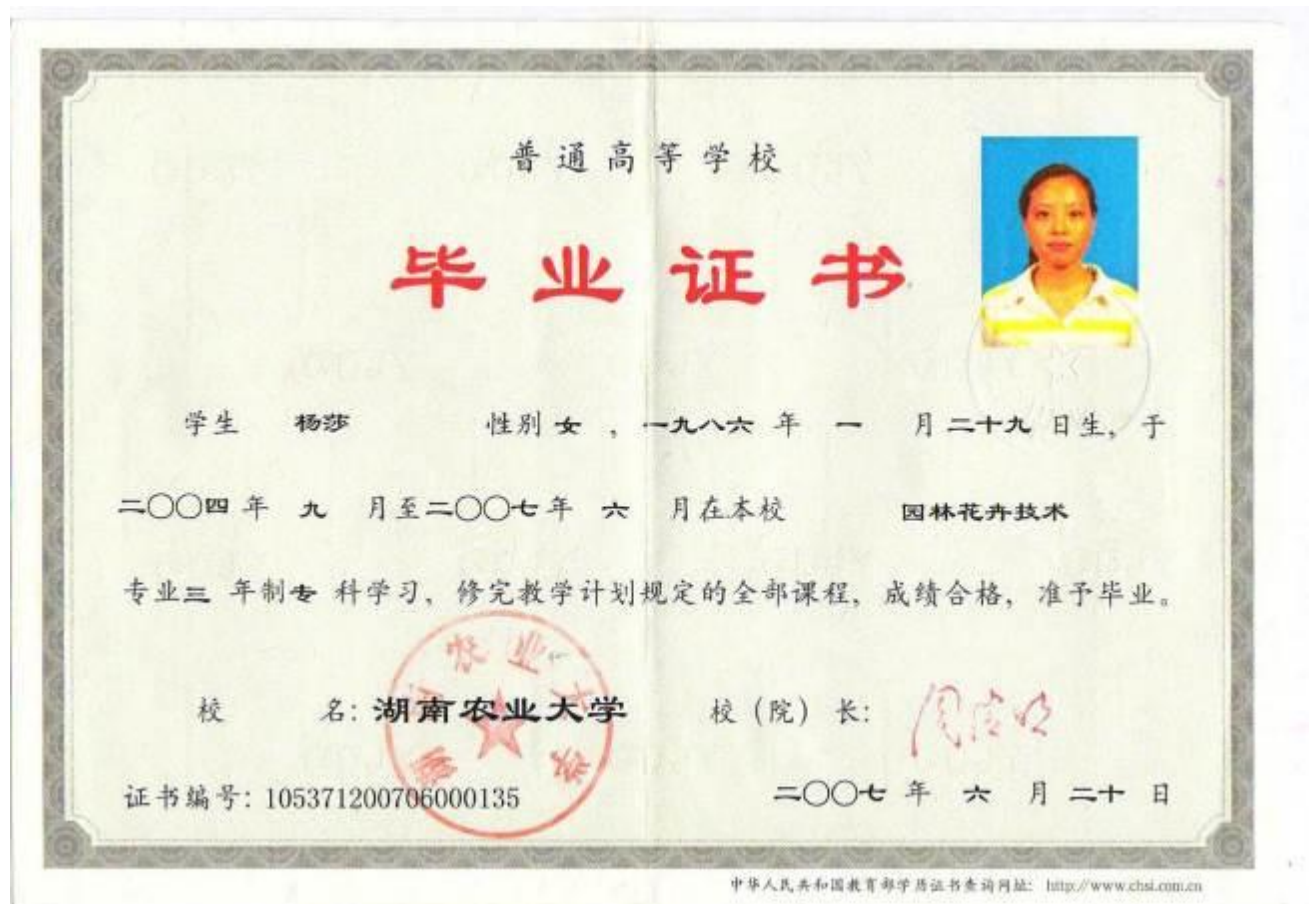 普通高等学校
毕业证书
学生 杨莎 性别 女 , 一九八六 年 一 月 二十九 日生, 于
二〇〇四 年 九 月至 二〇〇七 年 六 月在本校 园林花卉技术
专业 三 年制 专 科学习, 修完教学计划规定的全部课程, 成绩合格, 准予毕业。
校 名: 湖南农业大学 校 (院) 长:
湖南农业大学
证书编号: 105371200706000135 二〇〇七 年 六 月 二十 日
中华人民共和国教育部学历证书查询网址: http://www.chsi.com.cn